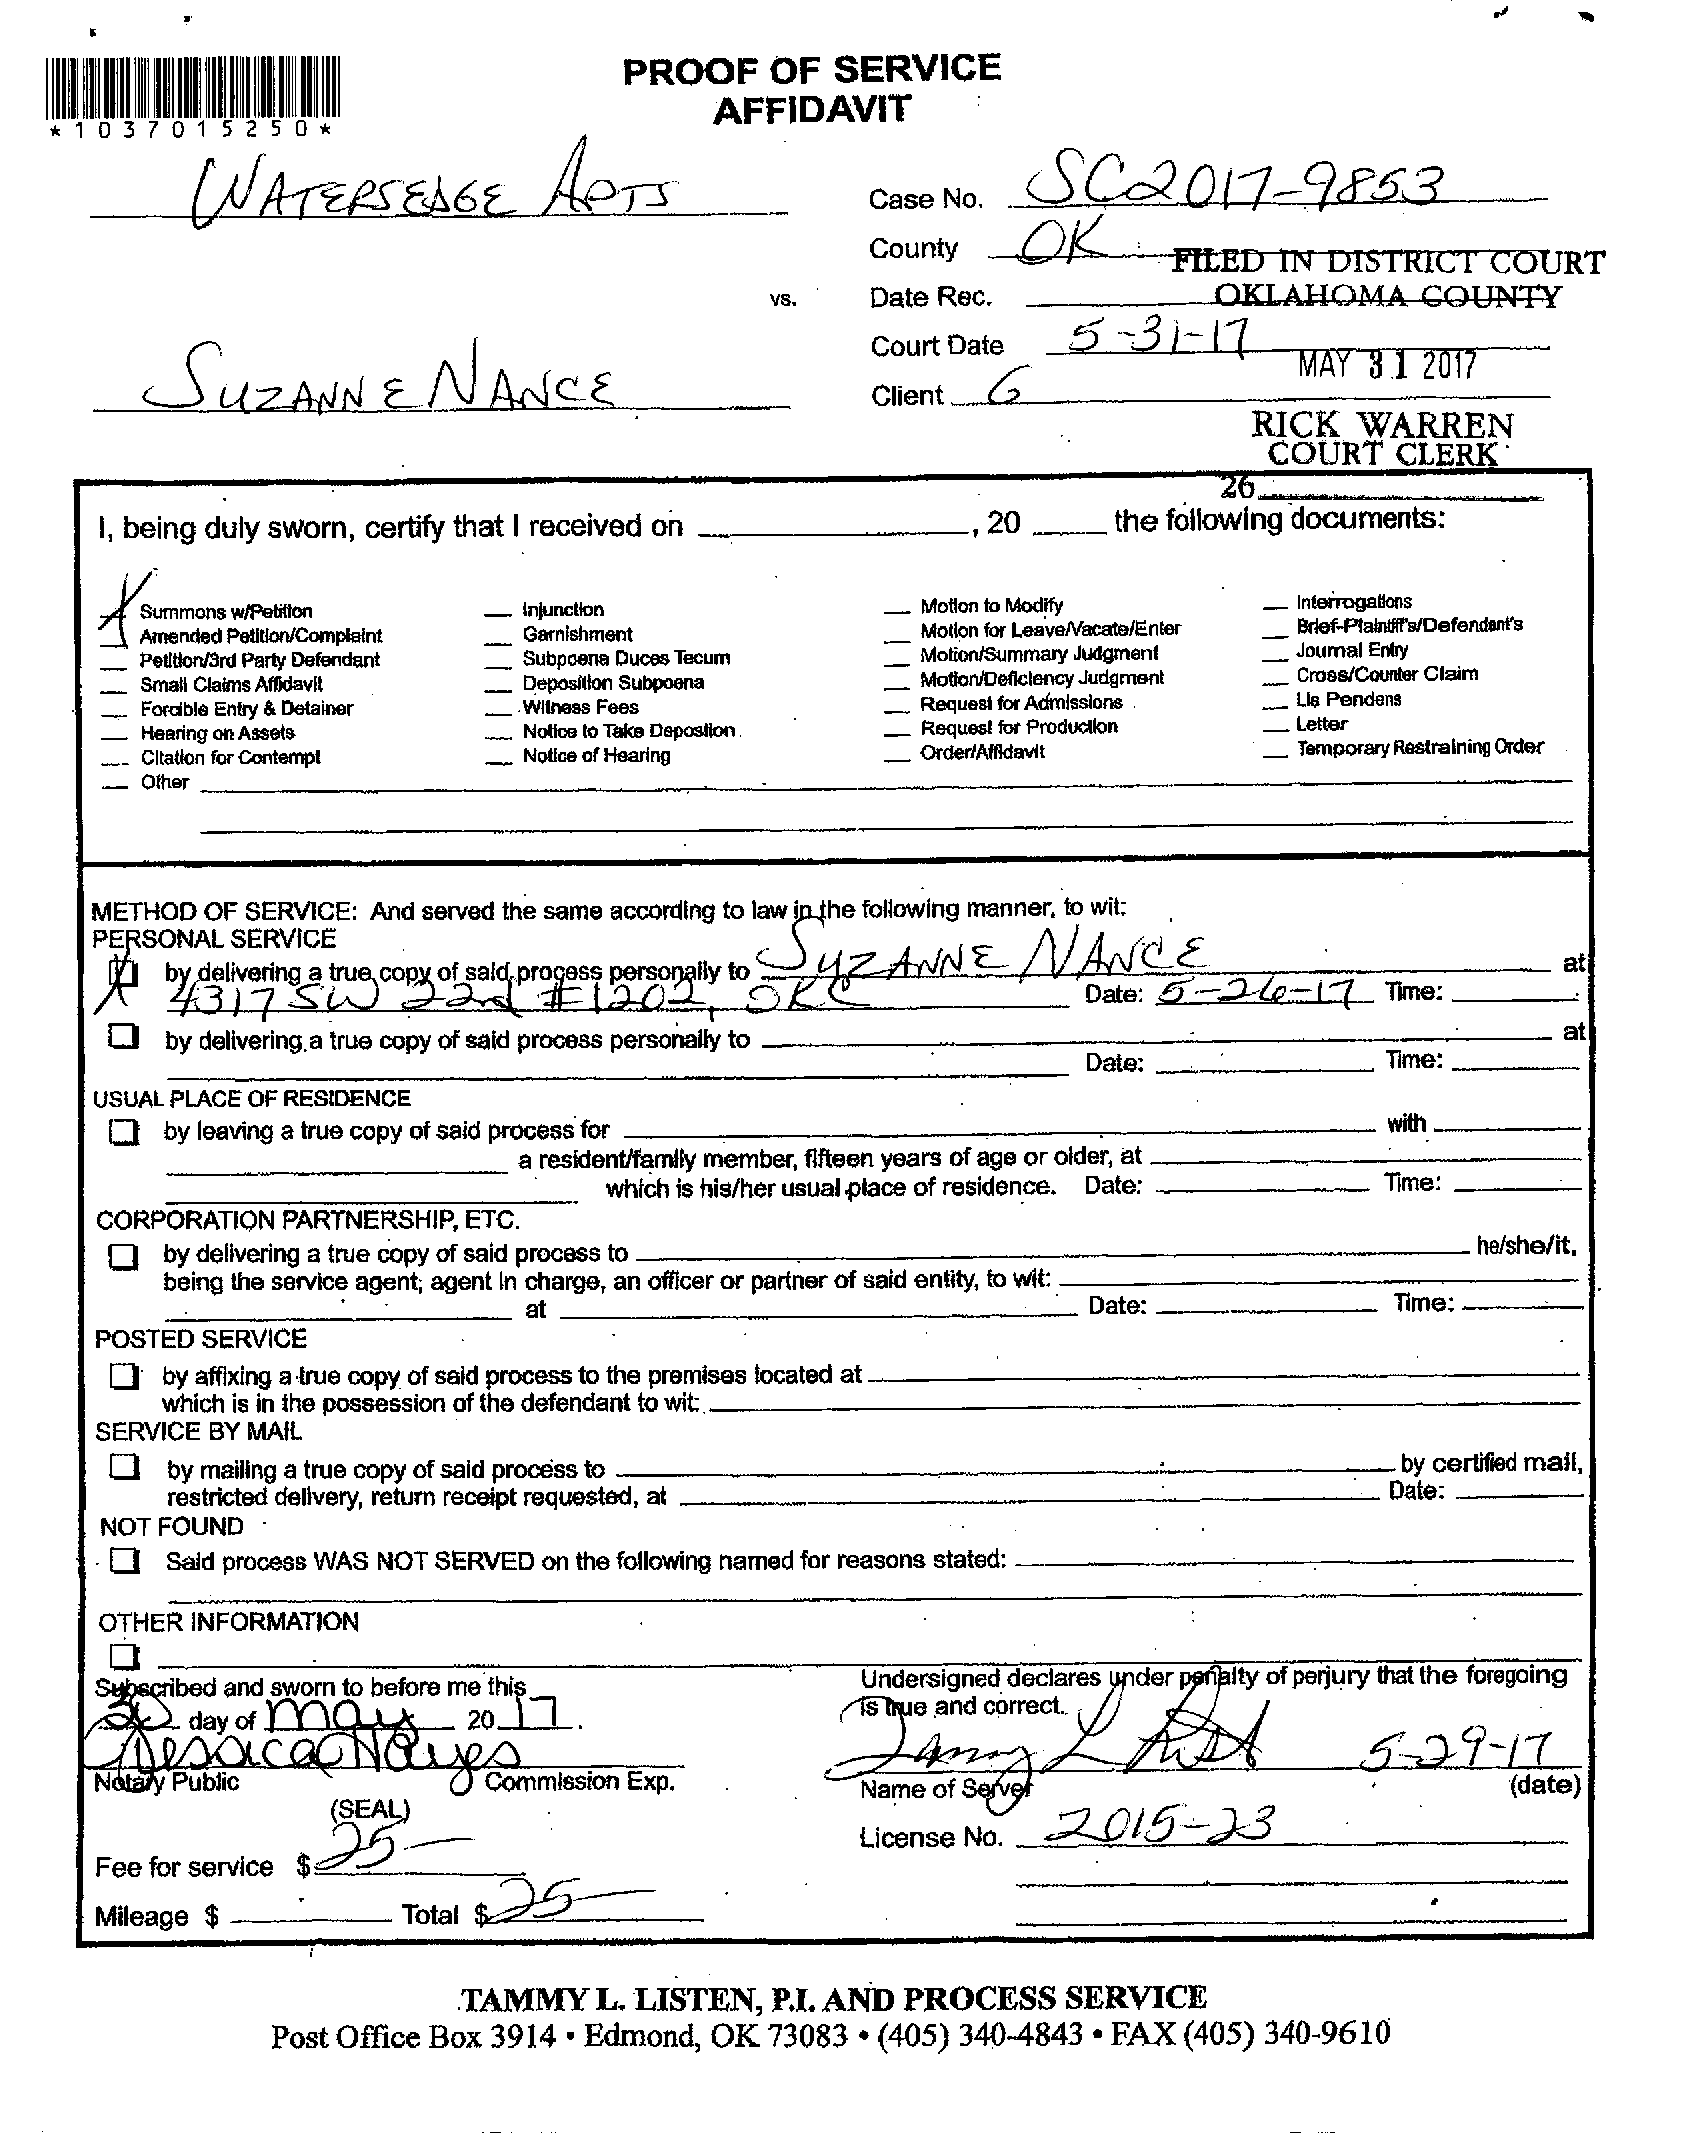 PROOF OF SERVICE
AFFIDAVIT
*1037015250*
WATERSEDGE APTS
Case No. SC2017-9853
County OK
FILED IN DISTRICT COURT
OKLAHOMA COUNTY
vs.
Date Rec.
Court Date 5-31-17
MAY 31 2017
SUZANNE NANCE
Client G
RICK WARREN
COURT CLERK
26
I, being duly sworn, certify that I received on , 20 the following documents:
X Summons w/Petition
Amended Petition/Complaint
Petition/3rd Party Defendant
Small Claims Affidavit
Forcible Entry & Detainer
Hearing on Assets
Citation for Contempt
Other
Injunction
Garnishment
Subpoena Duces Tecum
Deposition Subpoena
Witness Fees
Notice to Take Deposition
Notice of Hearing
Motion to Modify
Motion for Leave/Vacate/Enter
Motion/Summary Judgment
Motion/Deficiency Judgment
Request for Admissions
Request for Production
Order/Affidavit
Interrogations
Brief-Plaintiff's/Defendant's
Journal Entry
Cross/Counter Claim
Lis Pendens
Letter
Temporary Restraining Order
METHOD OF SERVICE: And served the same according to law in the following manner, to wit:
PERSONAL SERVICE
X by delivering a true copy of said process personally to SUZANNE NANCE at
4317 SW 22nd #1202, OKC Date: 5-26-17 Time:
by delivering a true copy of said process personally to at
Date: Time:
USUAL PLACE OF RESIDENCE
by leaving a true copy of said process for with
a resident/family member, fifteen years of age or older, at
which is his/her usual place of residence. Date: Time:
CORPORATION PARTNERSHIP, ETC.
by delivering a true copy of said process to he/she/it,
being the service agent, agent in charge, an officer or partner of said entity, to wit:
at Date: Time:
POSTED SERVICE
by affixing a true copy of said process to the premises located at
which is in the possession of the defendant to wit:
SERVICE BY MAIL
by mailing a true copy of said process to by certified mail,
restricted delivery, return receipt requested, at Date:
NOT FOUND
Said process WAS NOT SERVED on the following named for reasons stated:
OTHER INFORMATION
Subscribed and sworn to before me this
day of May 2017.
Jessica Hayes
Notary Public Commission Exp.
(SEAL)
Fee for service $ 25-
Mileage $ Total $ 25-
Undersigned declares under penalty of perjury that the foregoing
is true and correct.
Tammy L 5-29-17
Name of Server (date)
License No. 2015-23
TAMMY L. LISTEN, P.I. AND PROCESS SERVICE
Post Office Box 3914 • Edmond, OK 73083 • (405) 340-4843 • FAX (405) 340-9610